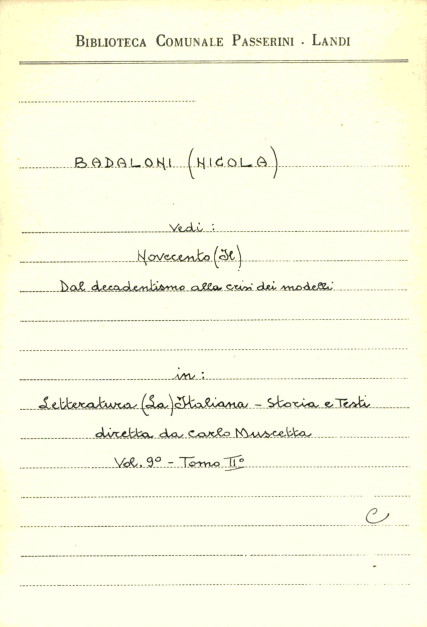 BIBLIOTECA COMUNALE PASSERINI - LANDI
BADALONI (NICOLA)
Vedi :
Novecento (Il)
Dal decadentismo alla crisi dei modelli
in :
Letteratura (La) Italiana - Storia e Testi
diretta da Carlo Muscetta
Vol. 9° - Tomo II°
C